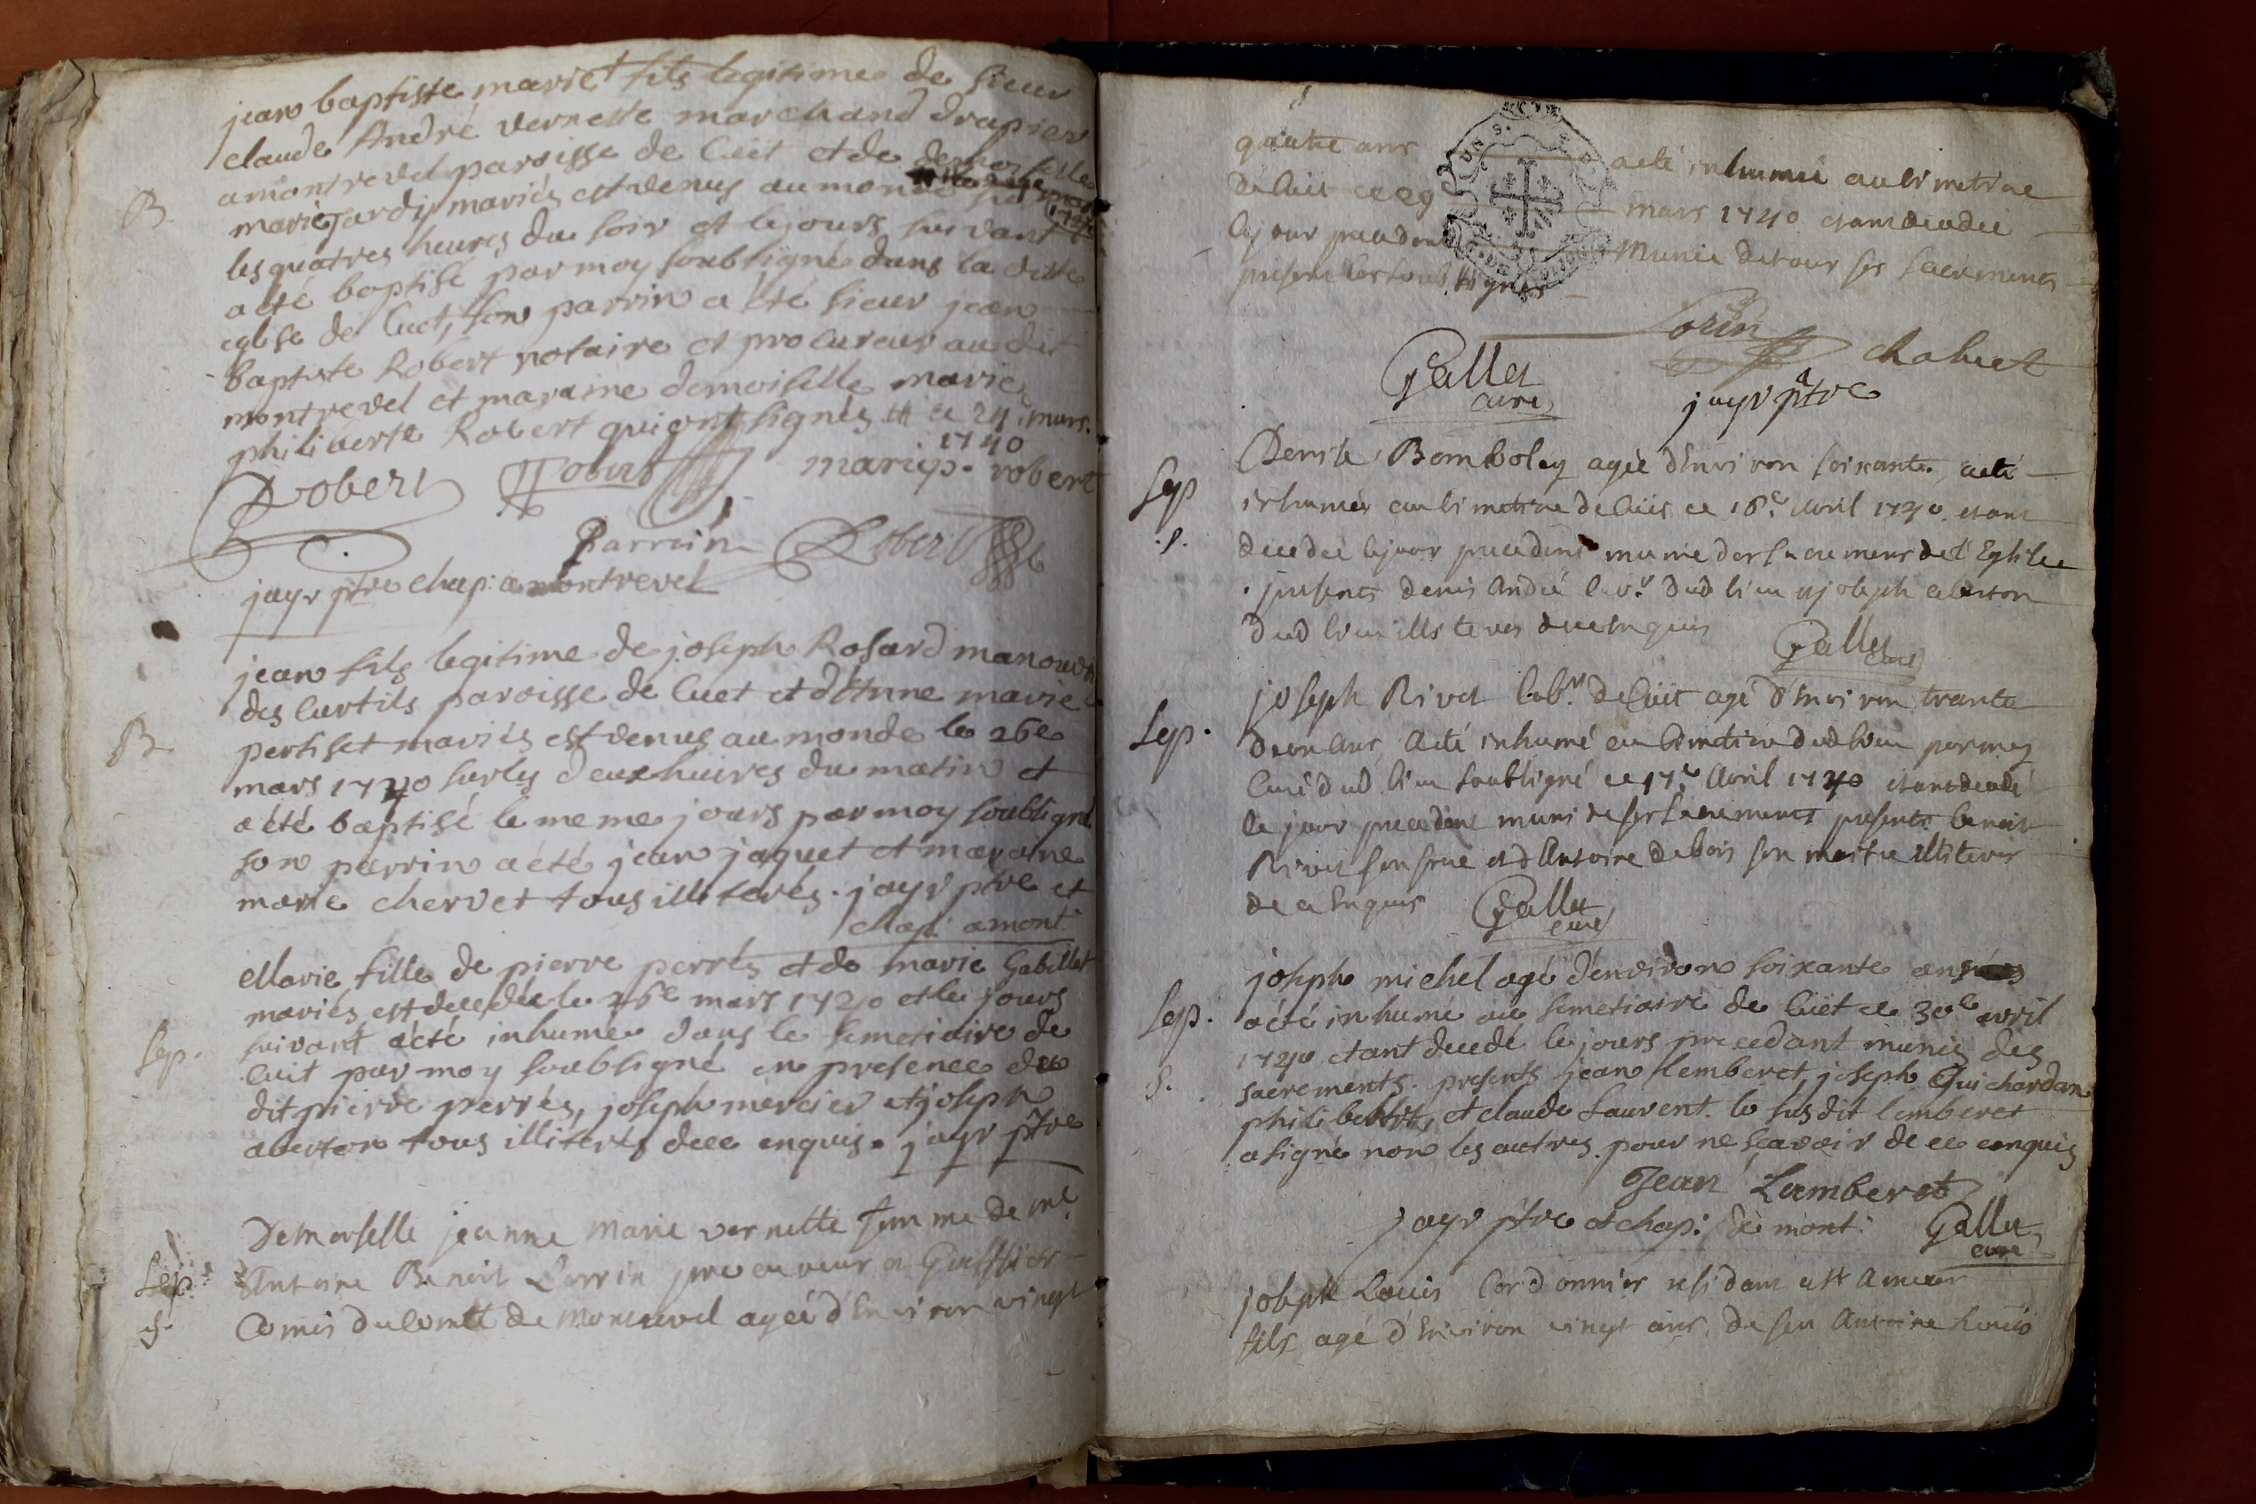 jean baptiste marie fils legitime de sieur
claude André vernette marchand drapier
a montrevel paroisse de Cuet et de demoiselle
marie jardy mariés est venus au monde
B
les quatres heures du soir et le jours suivant
a été baptisé par moy soubsigné dans la ditte
eglise de Cuet, son parrin a été sieur jean
baptiste Robert notaire et procureur au dit
montrevel et maraine demoiselle marie
philiberte Robert qui ont signés ce 24 mars.
1740
Robert Robert marie p. robert
Parrin Robert
jayr ptre chap: a montrevel
jean fils legitime de joseph Rosard manouv
des Curtils paroisse de Cuet et d'Anne marie
B
pertiset mariés est venus au monde le 26e
mars 1740 sur les deux huires du matin et
a été baptisé le meme jours par moy soubsigné
son parrin a été jean jaquet et maraine
marie chervet tous illiterés. jayr ptre et
chap: a mont
Marie fille de pierre perrés et de marie Gabillet
mariés est decedée le 26e mars 1740 et le jours
Sep.
suivant a été inhumé dans le semetiaire de
Cuit par moy soubsigné en presence du
dit pierre perrés, joseph mercier et joseph
aberton tous illiterés de ce enquis. jayr ptre
Demoiselle jeanne Marie vernette femme de me
Sep.
Antoine Benoit Lorrin procureur et Greffier
S.
Comis du Comté de Montrevel agée d'Environ vingt
quatre ans a eté inhumée au simetire
de Cuit ce 29e mars 1740 etant decedee
le jour precedent Munie de tous ses sacrements
presents les soubsignés
Lorin
Gallet chahuet
curé jayr ptre
Denise Bomboley agée d'Environ soixante, a eté
Sep
inhumée au simetire de Cuit ce 16e Avril 1740 etant
.S.
decedée le jour precedent munie des sacrements de l'Eglise
presents denis André labr. dud lieu et joseph aberton
dud lieu illiterés de ce enquis Gallet
curé
joseph Rivet labr. de Cuit agé d'Environ trante
Sep.
deux ans, a eté inhumé au simetire dud lieu par moy
Curé dud. lieu soubsigné ce 17e Avril 1740 etant decedé
le jour precedent muni de ses sacrements presents benoit
Rivet son frere et d'Antoine dubois son maitre illiterés
de ce Enquis Gallet
curé
joseph michel agé d'environ soixante ans
Sep.
a été inhumé au semetiaire de Cuet ce 30e avril
1740 etant decedé le jours precedant munis des
S.
sacrements. presents jean Lemberet, joseph Guichardan
philibert, et claude Laurent. le susdit lemberet
a signé non les autres pour ne scavoir de ce enquis
Jean Lamberet
jayr ptre et chap: de mont: Gallet
curé
joseph Louis Cordonnier residant
fils agé d'Environ vingt ans, de feu Antoine Louis